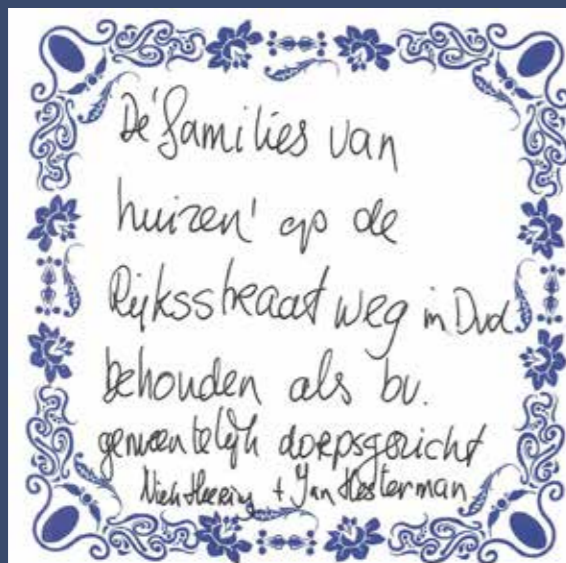 De 'families van
huizen' op de
Rijksstraatweg in Dvd.
behouden als bv.
gemeentelijk dorpsgezicht
Niek Heering + Jan Hesterman